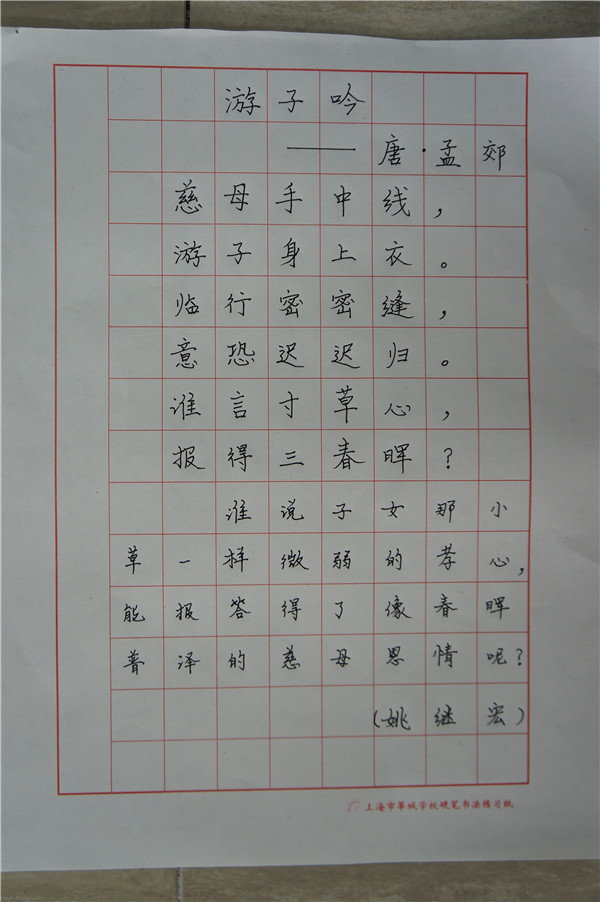 游子吟
——唐·孟郊
慈母手中线，
游子身上衣。
临行密密缝，
意恐迟迟归。
谁言寸草心，
报得三春晖？
谁说子女那小
草一样微弱的孝心，
能报答得了像春晖
普泽的慈母恩情呢？
（姚继宏）
上海市莘城学校硬笔书法练习纸